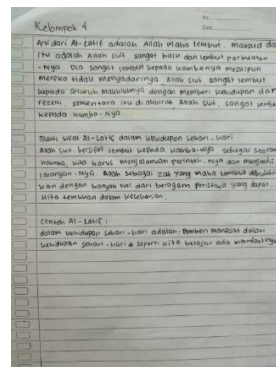 No.
Date
Kelompok 4
Arti dari Al-Latif adalah Allah maha lembut, maksud da
itu adalah Allah swt sangat halus dan lembut perbuatan
-Nya Dia sangat lembut kepada hambanya meskipun
mereka tidak menyadarinya Allah swt sangat lembut
kepada seluruh makhluknya dengan memberi kehidupan dan
rezeki, sementara itu di akhirat Allah swt, sangat lembu
kepada hamba-Nya
sifat Al-Latif dalam kehidupan sehari-hari
Allah swt bersifat lembut kepada hamba-Nya sebagai seoran
hamba, kita harus menjalankan perintah-Nya dan menjauhi
larangan-Nya. Allah sebagai zat yang maha lembut dibukti
kan dengan banyak hal dari beragam peristiwa yang dapat
kita temukan dalam kehidupan.
Contoh Al-Latif :
dalam kehidupan sehari-hari adalah, memberi manfaat dalam
kehidupan sehari-hari seperti kita belajar ada manfaatnya